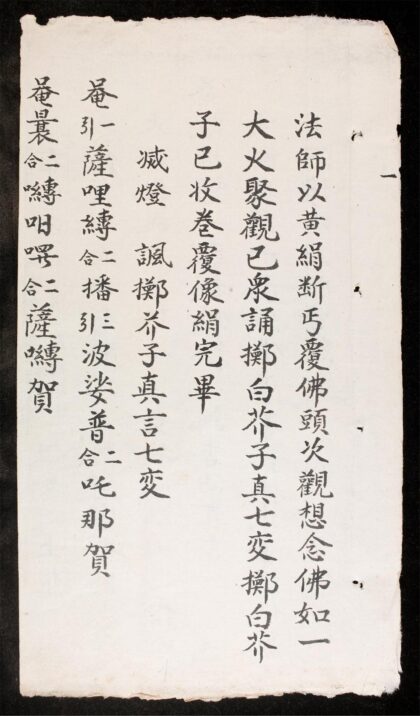 一
法師以黄絹断丐覆佛頭次觀想念佛如一
大火聚觀已衆誦擲白芥子真七変擲白芥
子已收巻覆像絹完畢
滅燈 諷擲芥子真言七変
菴一引薩哩縛二合播三引波娑普二合吒那賀
菴曩二合嚩二合薩嚩賀